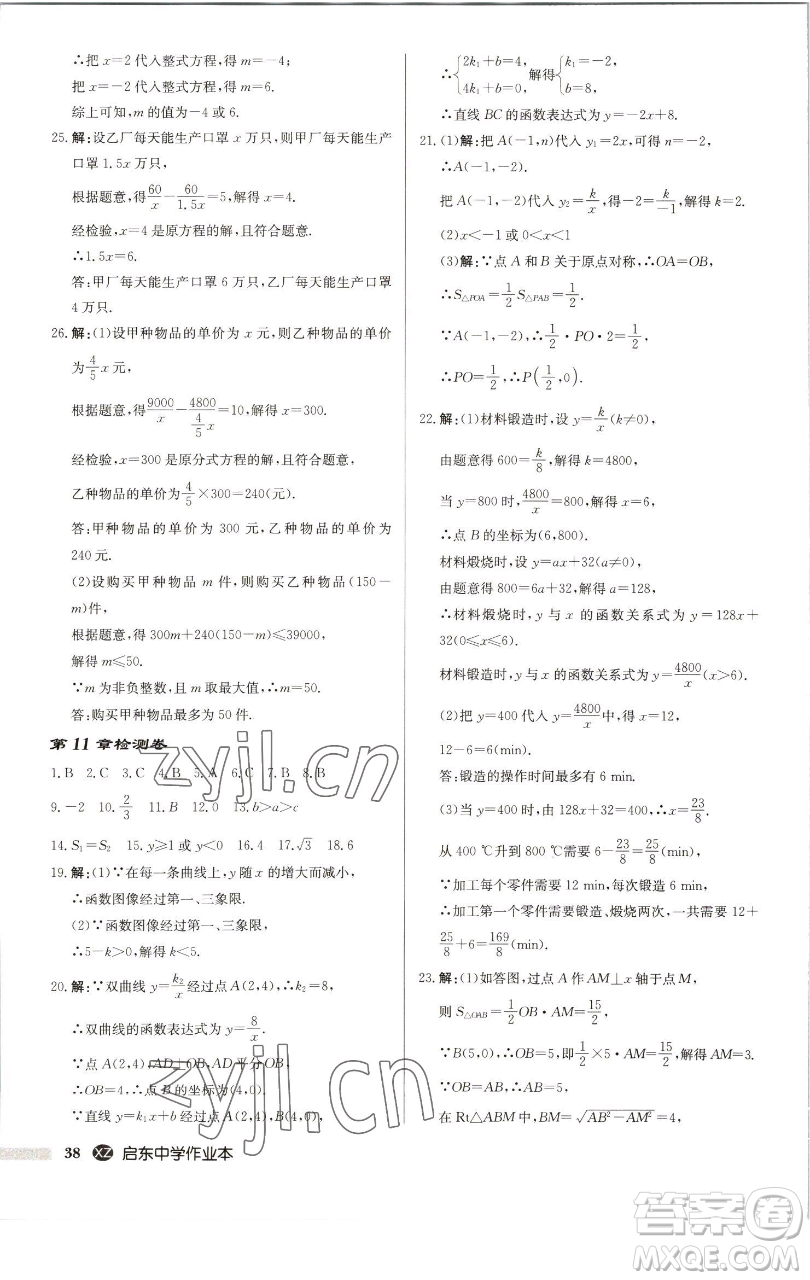 ∴把 x=2 代入整式方程,得 m=-4;
把 x=-2 代入整式方程,得 m=6.
综上可知,m 的值为-4 或 6.
25. 解:设乙厂每天能生产口罩 x 万只,则甲厂每天能生产
口罩 1.5x 万只,
根据题意,得60/x-60/1.5x=5,解得 x=4.
经检验,x=4 是原方程的解,且符合题意.
∴1.5x=6.
答:甲厂每天能生产口罩 6 万只,乙厂每天能生产口罩
4 万只.
26. 解:(1)设甲种物品的单价为 x 元,则乙种物品的单价
为4/5x 元,
根据题意,得9000/x-4800/(4/5x)=10,解得 x=300.
经检验,x=300 是原分式方程的解,且符合题意,
乙种物品的单价为4/5×300=240(元).
答:甲种物品的单价为 300 元,乙种物品的单价为
240 元.
(2)设购买甲种物品 m 件,则购买乙种物品(150-
m)件,
根据题意,得 300m+240(150-m)≤39000,
解得 m≤50.
∵m 为非负整数,且 m 取最大值,∴m=50.
答:购买甲种物品最多为 50 件.
第 11 章检测卷
1. B 2. C 3. C 4. B 5. A 6. C 7. B 8. B
9. -2 10. 2/3 11. B 12. 0 13. b>a>c
14. S₁=S₂ 15. y≥1 或 y<0 16. 4 17. √3 18. 6
19. 解:(1)∵在每一条曲线上,y 随 x 的增大而减小,
∴函数图像经过第一、三象限.
(2)∵函数图像经过第一、三象限,
∴5-k>0,解得 k<5.
20. 解:∵双曲线 y=k₂/x经过点 A(2,4),∴k₂=8,
∴双曲线的函数表达式为 y=8/x.
∵点 A(2,4),AD⊥OB,AD 平分OB,
∴OB=4,∴点 B 的坐标为(4,0).
∵直线 y=k₁x+b 经过点 A(2,4),B(4,0),
38 XZ 启东中学作业本
∴{2k₁+b=4, 4k₁+b=0, 解得{k₁=-2, b=8,
∴直线 BC 的函数表达式为 y=-2x+8.
21. (1)解:把 A(-1,n)代入 y₁=2x,可得 n=-2,
∴A(-1,-2).
把 A(-1,-2)代入 y₂=k/x,得-2=k/-1,解得 k=2.
(2)x<-1 或 0<x<1
(3)解:∵点 A 和 B 关于原点对称,∴OA=OB,
∴S△POA=1/2S△PAB=1/2.
∵A(-1,-2),∴1/2·PO·2=1/2,
∴PO=1/2,∴P(1/2,0).
22. 解:(1)材料锻造时,设 y=k/x(k≠0),
由题意得 600=k/8,解得 k=4800,
当 y=800 时,4800/x=800,解得 x=6,
∴点 B 的坐标为(6,800).
材料煅烧时,设 y=ax+32(a≠0),
由题意得 800=6a+32,解得 a=128,
∴材料煅烧时,y 与 x 的函数关系式为 y=128x+
32(0≤x≤6).
材料锻造时,y 与 x 的函数关系式为 y=4800/x(x>6).
(2)把 y=400 代入 y=4800/x中,得 x=12,
12-6=6(min).
答:锻造的操作时间最多有 6 min.
(3)当 y=400 时,由 128x+32=400,得 x=23/8,
从 400 ℃升到 800 ℃需要 6-23/8=25/8(min),
∵加工每个零件需要 12 min,每次锻造 6 min,
∴加工第一个零件需要锻造、煅烧两次,一共需要 12+
25/8+6=169/8(min).
23. 解:(1)如答图,过点 A 作 AM⊥x 轴于点 M,
则 S△OAB=1/2OB·AM=15/2,
∵B(5,0),∴OB=5,即1/2×5·AM=15/2,解得 AM=3.
∵OB=AB,∴AB=5,
在 Rt△ABM 中,BM=√(AB²-AM²)=4,
zyjl.cn
zyjl.cn
答案卷
MXQE.COM